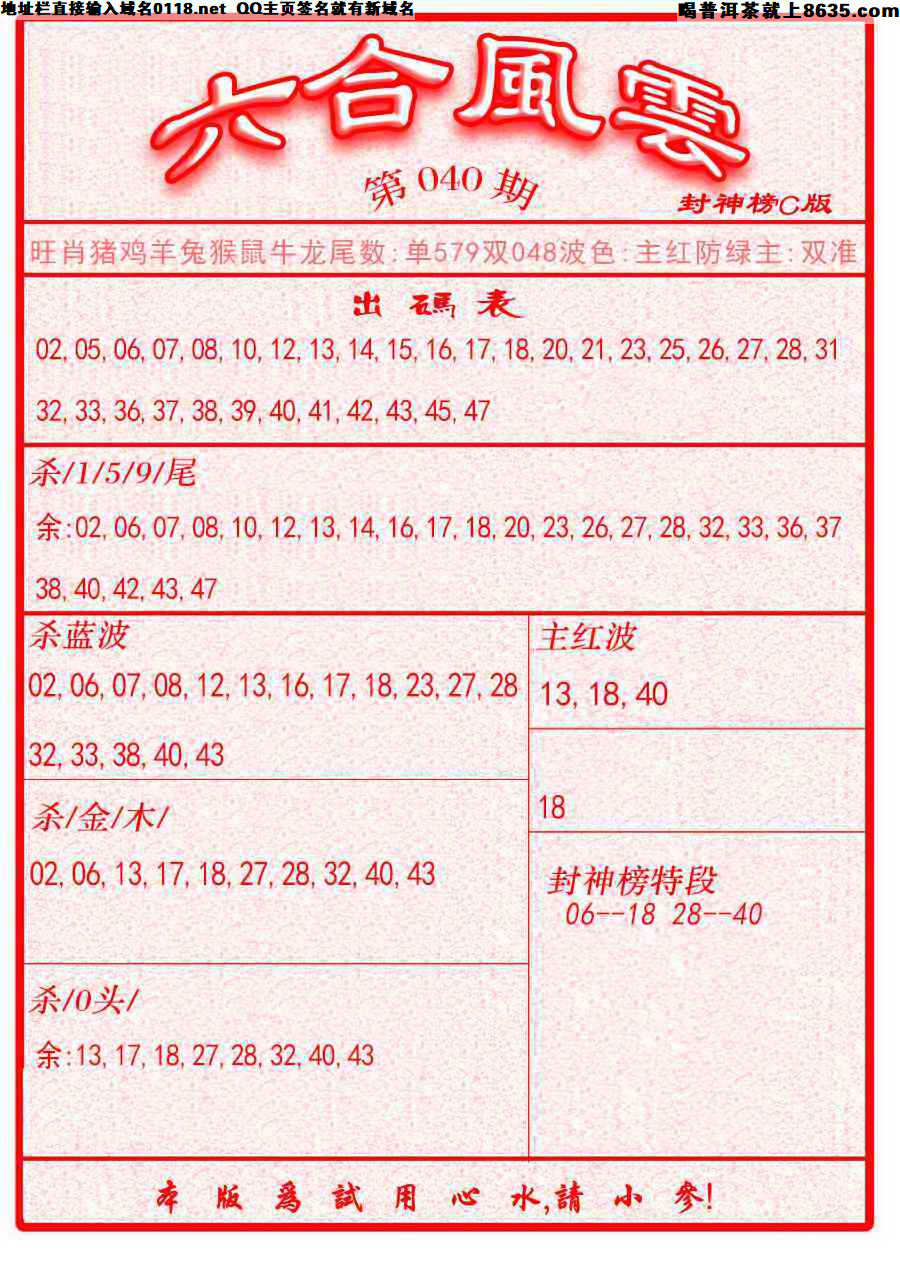 地址栏直接输入域名0118.net QQ主页签名就有新域名
喝普洱茶就上8635.com
六合風雲
第040期
封神榜C版
旺肖猪鸡羊兔猴鼠牛龙尾数:单579双048波色:主红防绿主:双准
出碼表
02,05,06,07,08,10,12,13,14,15,16,17,18,20,21,23,25,26,27,28,31
32,33,36,37,38,39,40,41,42,43,45,47
杀/1/5/9/尾
余:02,06,07,08,10,12,13,14,16,17,18,20,23,26,27,28,32,33,36,37
38,40,42,43,47
杀蓝波
02,06,07,08,12,13,16,17,18,23,27,28
32,33,38,40,43
主红波
13,18,40
18
杀/金/木/
02,06,13,17,18,27,28,32,40,43
封神榜特段
06--18 28--40
杀/0头/
余:13,17,18,27,28,32,40,43
本版爲試用心水,請小參!